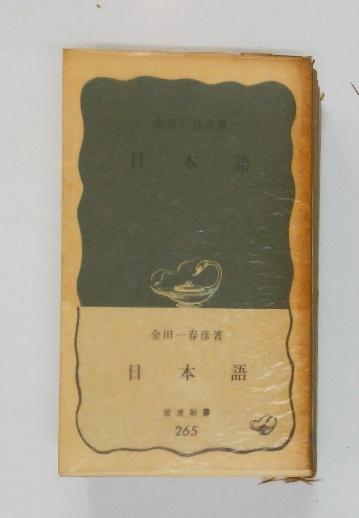 金田一春彦著
日本語
金田一春彦著
日本語
岩波新書
265